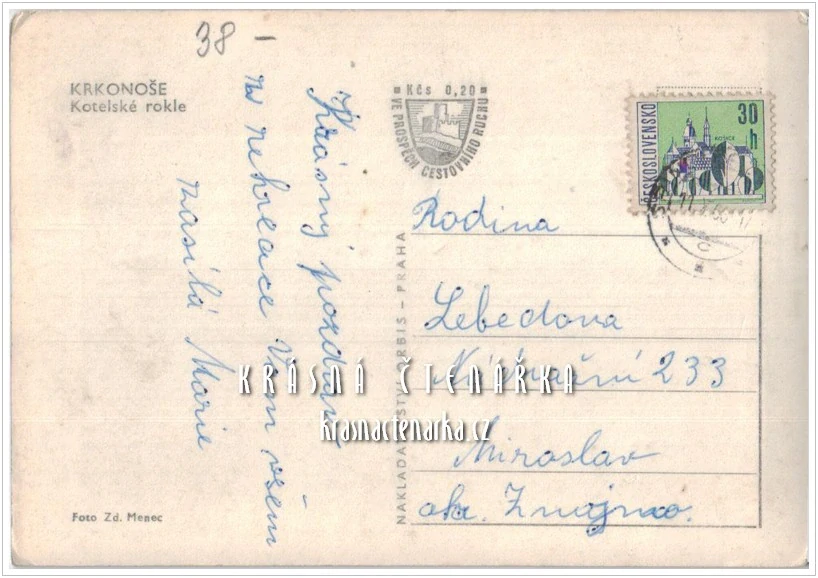 38 -
KRKONOŠE
Kotelské rokle
Krásný pozdrav
z rekreace Vám všem
zasílá Marie
Foto Zd. Menec
Kčs 0,20
VE PROSPĚCH CESTOVNÍHO RUCHU
NAKLADATELSTVÍ ORBIS – PRAHA
ČESKOSLOVENSKO
30 h
KOŠICE
Rodina
Lebedova
Nádražní 233
Miroslav
okr. Znojmo.
KRÁSNÁ ČTENÁŘKA
krasnactenarka.cz